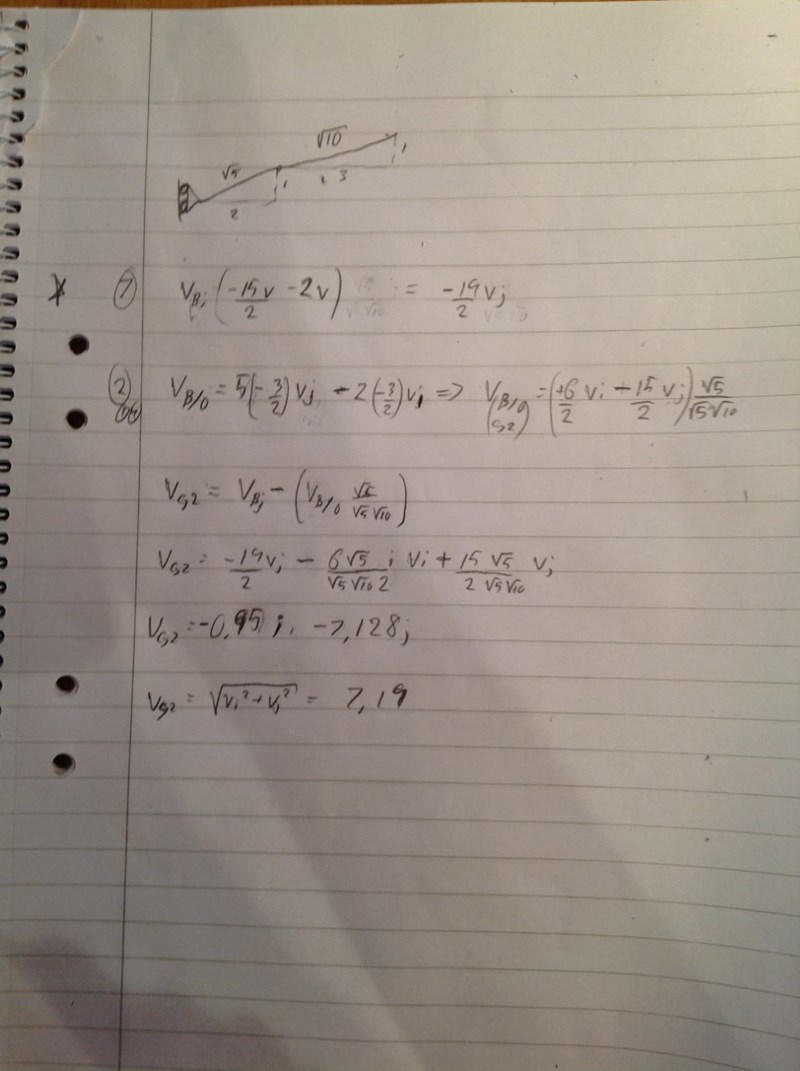 √10
√5 1
1 3
2
* ① V_Bj (-15v/2 - 2v) = -19/2 vj
② V_B/0 = 5(-3/2) vj - 2(-3/2) vj => V_B/0 (G2) = (+6/2 vi - 15/2 vj) √5/√5√10
V_G2 = V_Bj - (V_B/0 √5/√5√10)
V_G2 = -19vj/2 - 6√5/√5√10 2 i vi + 15√5/2√5√10 vj
V_G2 = -0,95 i, -7,128j
V_G2 = √vi²+vj² = 7,19